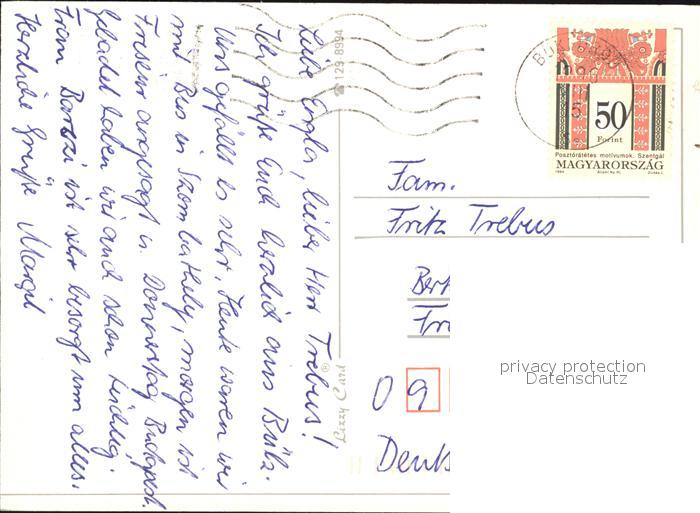 Liebe Engla, lieber Herr Trebus!
Ich grüße Euch herzlich aus Bükz.
Uns gefällt es sehr. Heute waren wir
mit Bus in Szombathely, morgen ist
Friseur angesagt u. Donnerstag Budapest.
Gebadet haben wir auch schon tüchtig.
Frau Barszi ist sehr besorgt um alles.
Herzliche Grüße Margit
☎ 129 8994
Lizzy Card ®
50
Forint
Posztórátétes motívumok. Szentgál
MAGYARORSZÁG
1994
Fam.
Fritz Trebus
privacy protection
Datenschutz
09